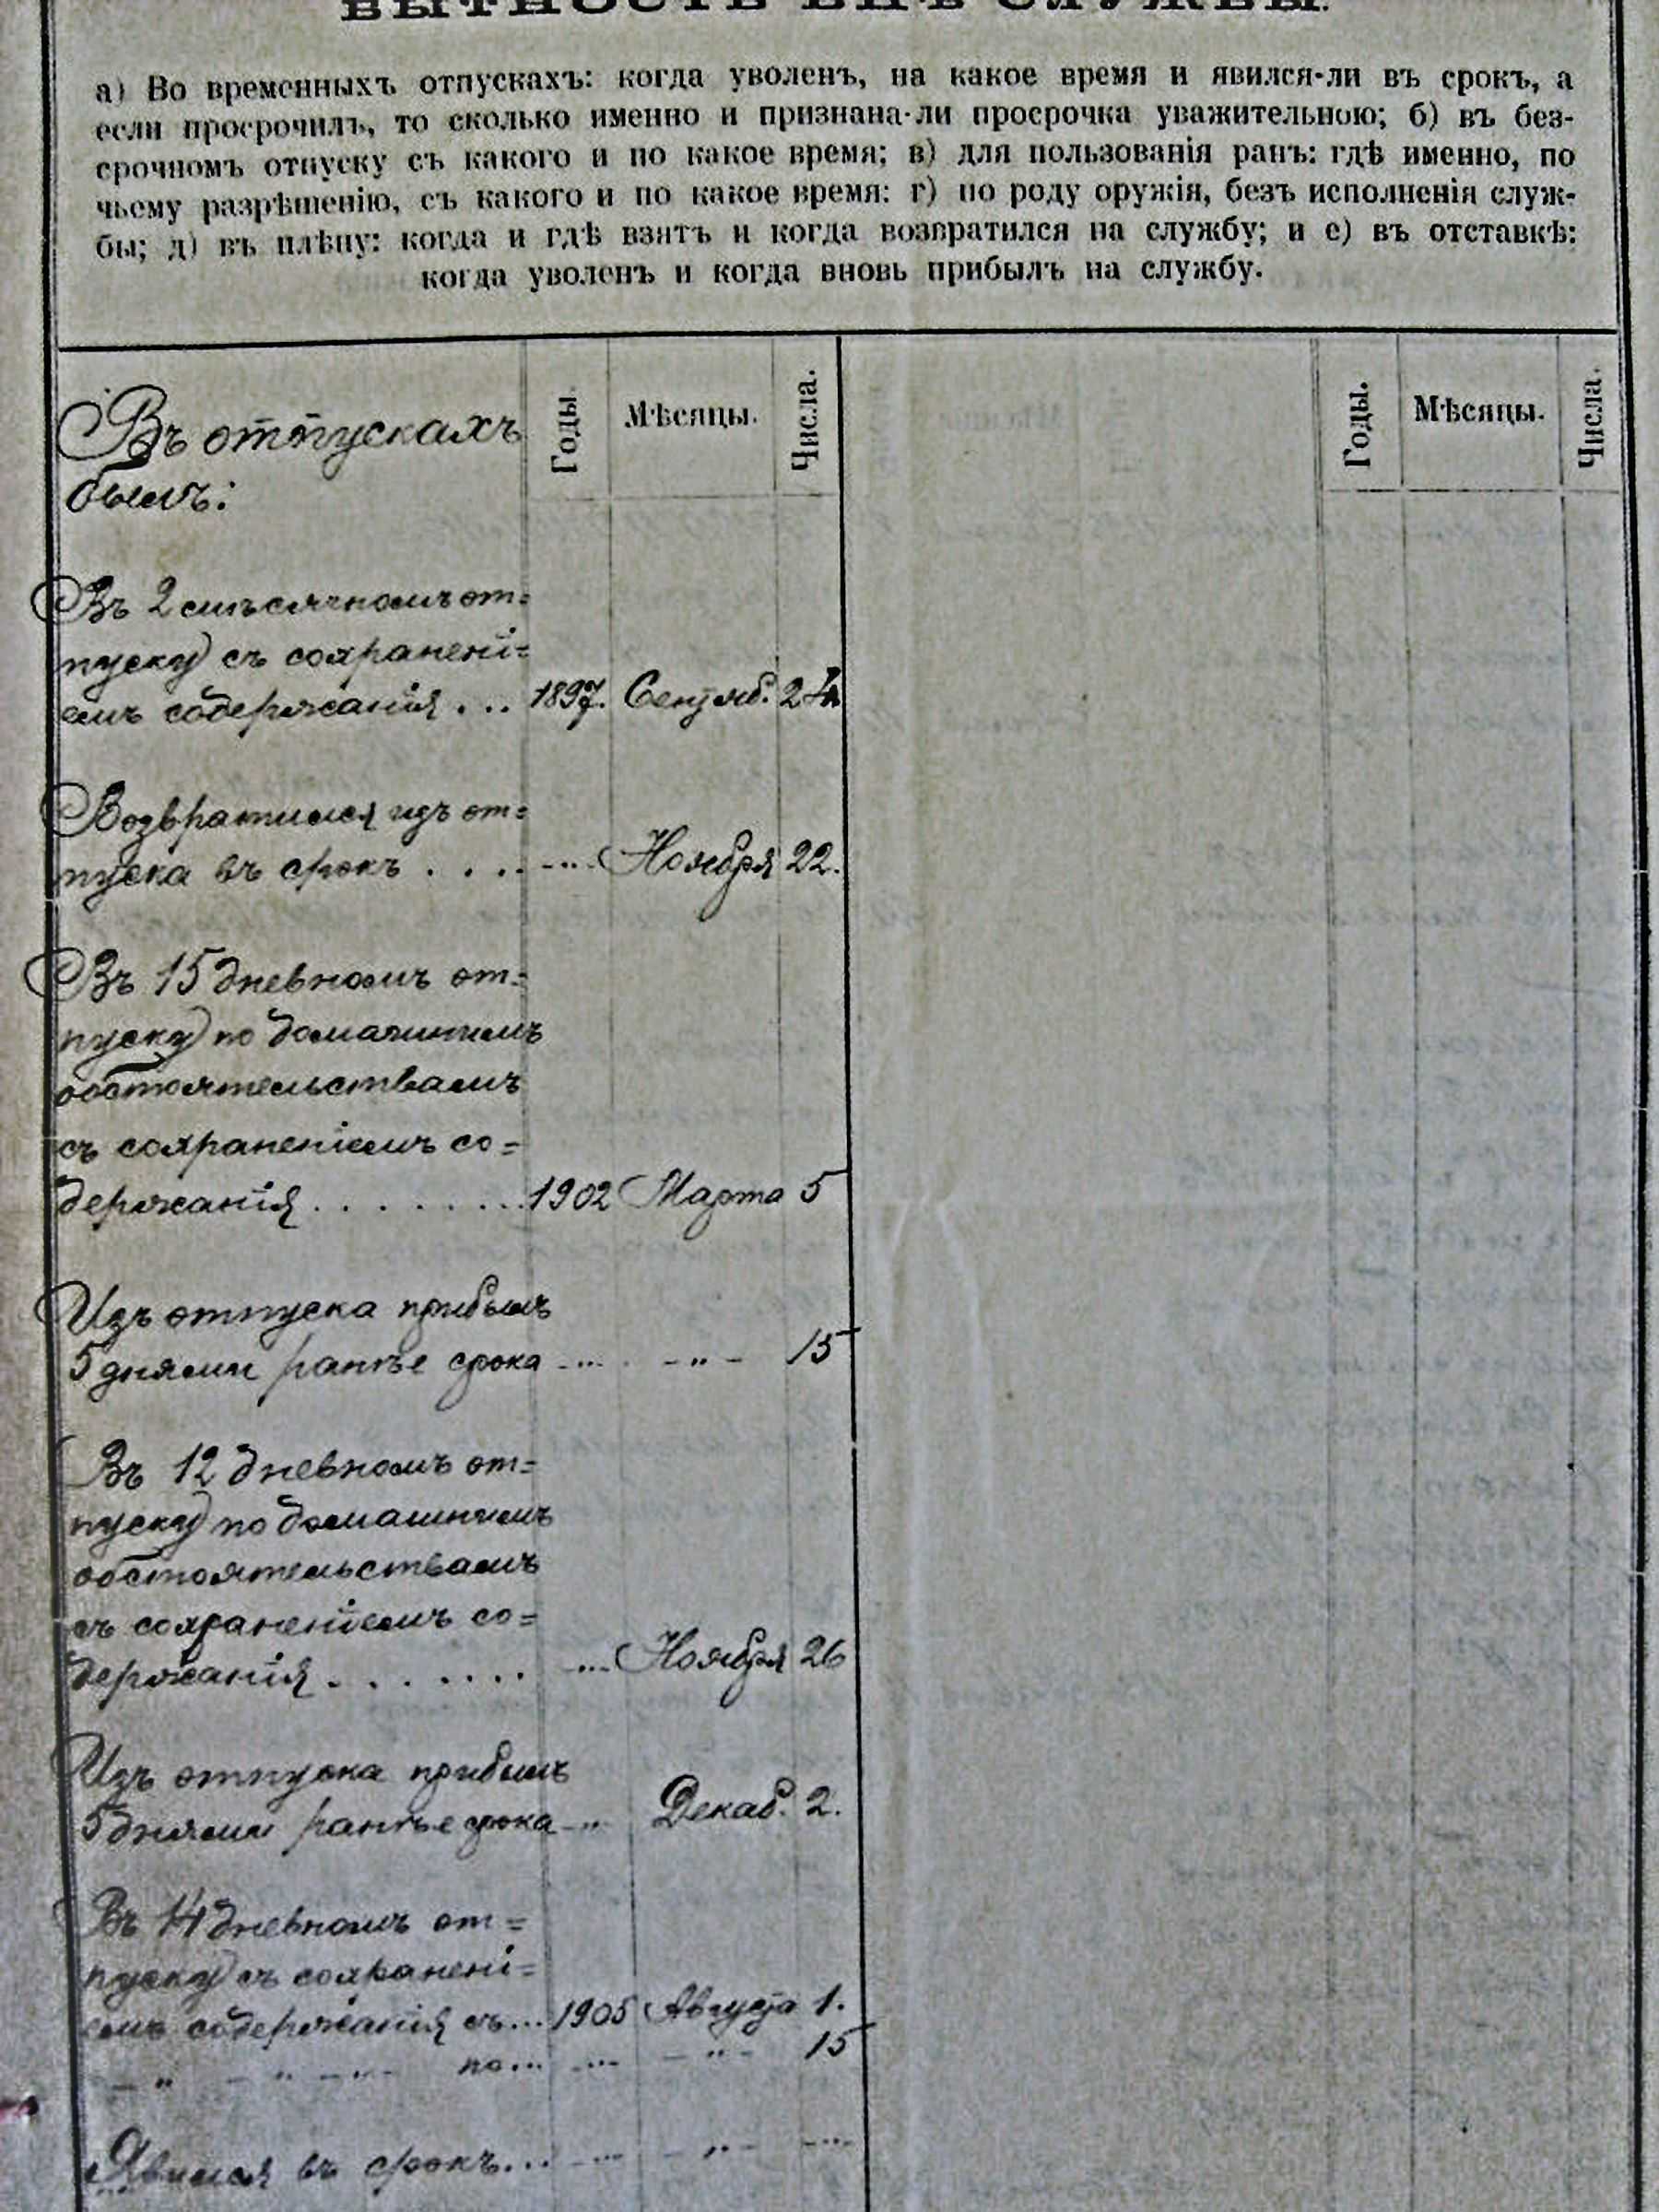 БЫТНОСТЬ ВНѢ СЛУЖБЫ.
а) Во временныхъ отпускахъ: когда уволенъ, на какое время и явился-ли въ срокъ, а
если просрочилъ, то сколько именно и признана-ли просрочка уважительною; б) въ без-
срочномъ отпуску съ какого и по какое время; в) для пользованія ранъ: гдѣ именно, по
чьему разрѣшенію, съ какого и по какое время: г) по роду оружія, безъ исполненія служ-
бы; д) въ плѣну: когда и гдѣ взятъ и когда возвратился на службу; и е) въ отставкѣ:
когда уволенъ и когда вновь прибылъ на службу.
Годы. Мѣсяцы. Числа. Годы. Мѣсяцы. Числа.
Въ отпускахъ
былъ:
Въ 2 мѣсячномъ от=
пуску съ сохранені=
емъ содержанія . . . 1897. Сентяб. 24
Возвратился изъ от=
пуска въ срокъ . . . . -"- Ноября 22.
Въ 15 дневномъ от=
пуску по домашнимъ
обстоятельствамъ
съ сохраненіемъ со=
держанія . . . . . . . . 1902 Марта 5
Изъ отпуска прибылъ
5 днями ранѣе срока -"- -"- 15
Въ 12 дневномъ от=
пуску по домашнимъ
обстоятельствамъ
съ сохраненіемъ со=
держанія . . . . . . . -"- Ноября 26
Изъ отпуска прибылъ
5 днями ранѣе срока -"- Декаб. 2.
Въ 14 дневномъ от=
пуску съ сохранені=
емъ содержанія съ... 1905 Августа 1.
-"- -"- -"- по... -"- -"- 15
Явился въ срокъ... -"- -"- -"-